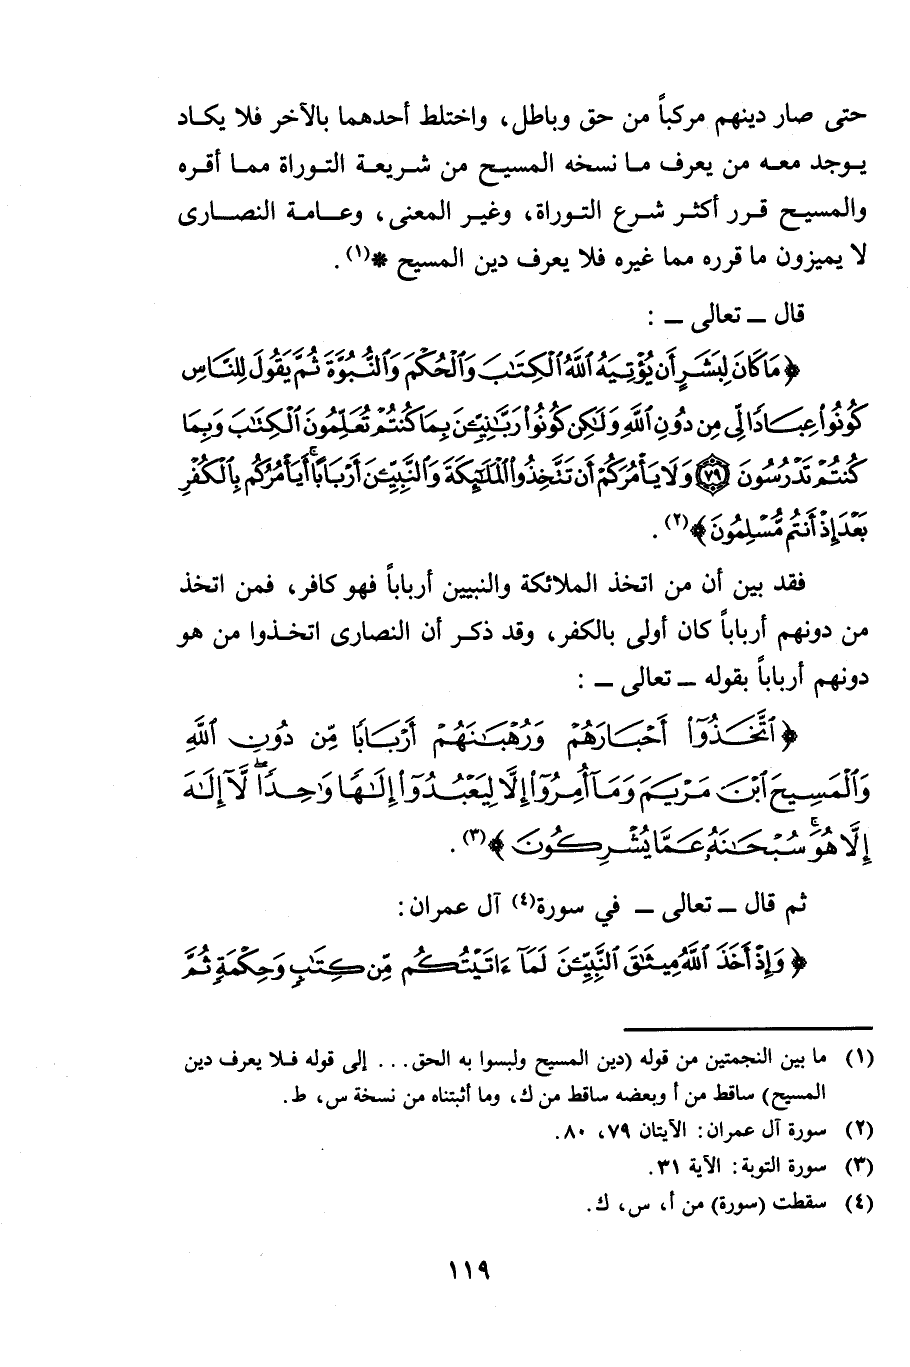 حتى صار دينهم مركباً من حق وباطل، واختلط أحدهما بالآخر فلا يكاد
يوجد معه من يعرف ما نسخه المسيح من شريعة التوراة مما أقره
والمسيح قرر أكثر شرع التوراة، وغير المعنى، وعامة النصارى
لا يميزون ما قرره مما غيره فلا يعرف دين المسيح *(١).
قال ــ تعالى ــ :
﴿مَا كَانَ لِبَشَرٍ أَن يُؤْتِيَهُ ٱللَّهُ ٱلْكِتَٰبَ وَٱلْحُكْمَ وَٱلنُّبُوَّةَ ثُمَّ يَقُولَ لِلنَّاسِ
كُونُوا۟ عِبَادًا لِّى مِن دُونِ ٱللَّهِ وَلَٰكِن كُونُوا۟ رَبَّٰنِيِّـۧنَ بِمَا كُنتُمْ تُعَلِّمُونَ ٱلْكِتَٰبَ وَبِمَا
كُنتُمْ تَدْرُسُونَ ۝٧٩ وَلَا يَأْمُرَكُمْ أَن تَتَّخِذُوا۟ ٱلْمَلَٰٓئِكَةَ وَٱلنَّبِيِّـۧنَ أَرْبَابًا ۗ أَيَأْمُرُكُم بِٱلْكُفْرِ
بَعْدَ إِذْ أَنتُم مُّسْلِمُونَ﴾(٢).
فقد بين أن من اتخذ الملائكة والنبيين أرباباً فهو كافر، فمن اتخذ
من دونهم أرباباً كان أولى بالكفر، وقد ذكر أن النصارى اتخذوا من هو
دونهم أرباباً بقوله ــ تعالى ــ :
﴿ٱتَّخَذُوٓا۟ أَحْبَارَهُمْ وَرُهْبَٰنَهُمْ أَرْبَابًا مِّن دُونِ ٱللَّهِ
وَٱلْمَسِيحَ ٱبْنَ مَرْيَمَ وَمَآ أُمِرُوٓا۟ إِلَّا لِيَعْبُدُوٓا۟ إِلَٰهًا وَٰحِدًا ۖ لَّآ إِلَٰهَ
إِلَّا هُوَ ۚ سُبْحَٰنَهُۥ عَمَّا يُشْرِكُونَ﴾(٣).
ثم قال ــ تعالى ــ في سورة(٤) آل عمران:
﴿وَإِذْ أَخَذَ ٱللَّهُ مِيثَٰقَ ٱلنَّبِيِّـۧنَ لَمَآ ءَاتَيْتُكُم مِّن كِتَٰبٍ وَحِكْمَةٍ ثُمَّ
(١) ما بين النجمتين من قوله (دين المسيح ولبسوا به الحق... إلى قوله فلا يعرف دين
المسيح) ساقط من أ وبعضه ساقط من ك، وما أثبتناه من نسخة س، ط.
(٢) سورة آل عمران: الآيتان ٧٩، ٨٠.
(٣) سورة التوبة: الآية ٣١.
(٤) سقطت (سورة) من أ، س، ك.
١١٩